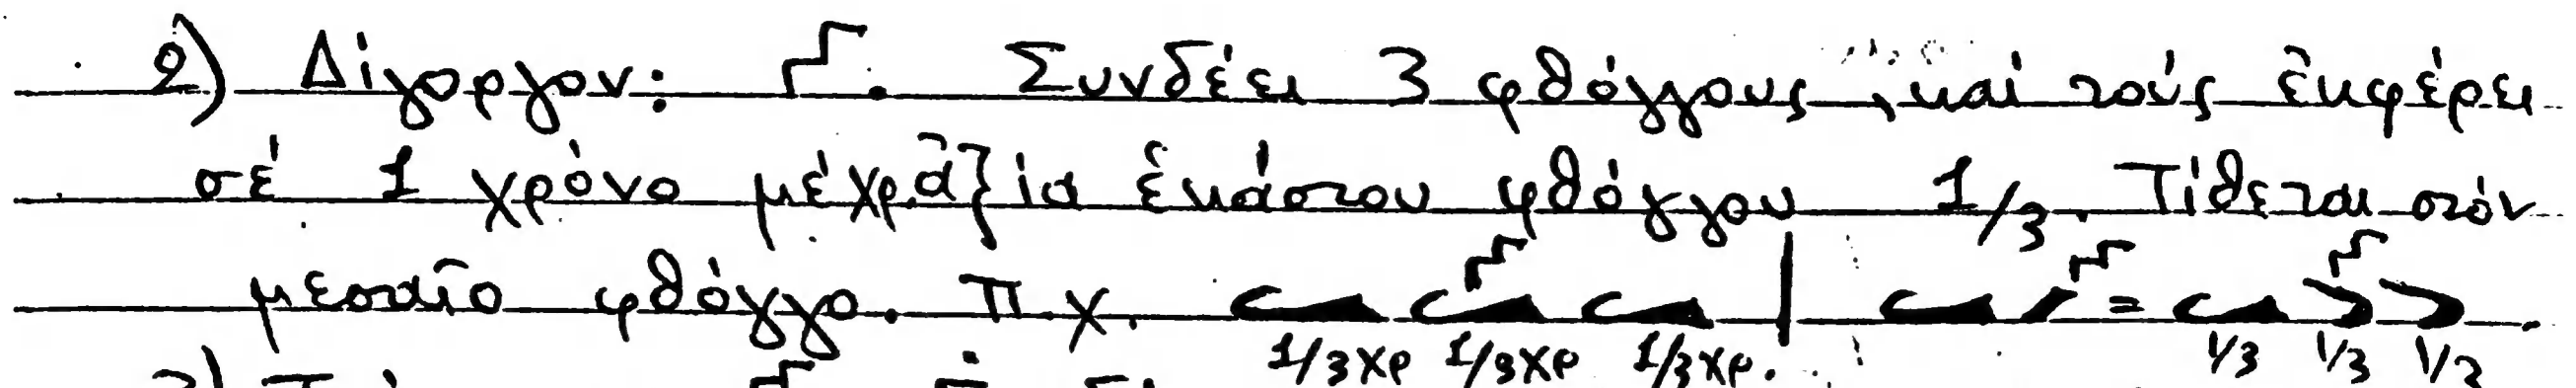 2) Δίγοργον: . Συνδέει 3 φθόγγους, καί τούς ἐκφέρει
σέ 1 χρόνο μέ χρ. ἀξία ἑκάστου φθόγγου 1/3. Τίθεται στόν
μεσαῖο φθόγγο. π.χ. | = .
1/3 χρ 1/3 χρ 1/3 χρ. 1/3 1/3 1/3
3)